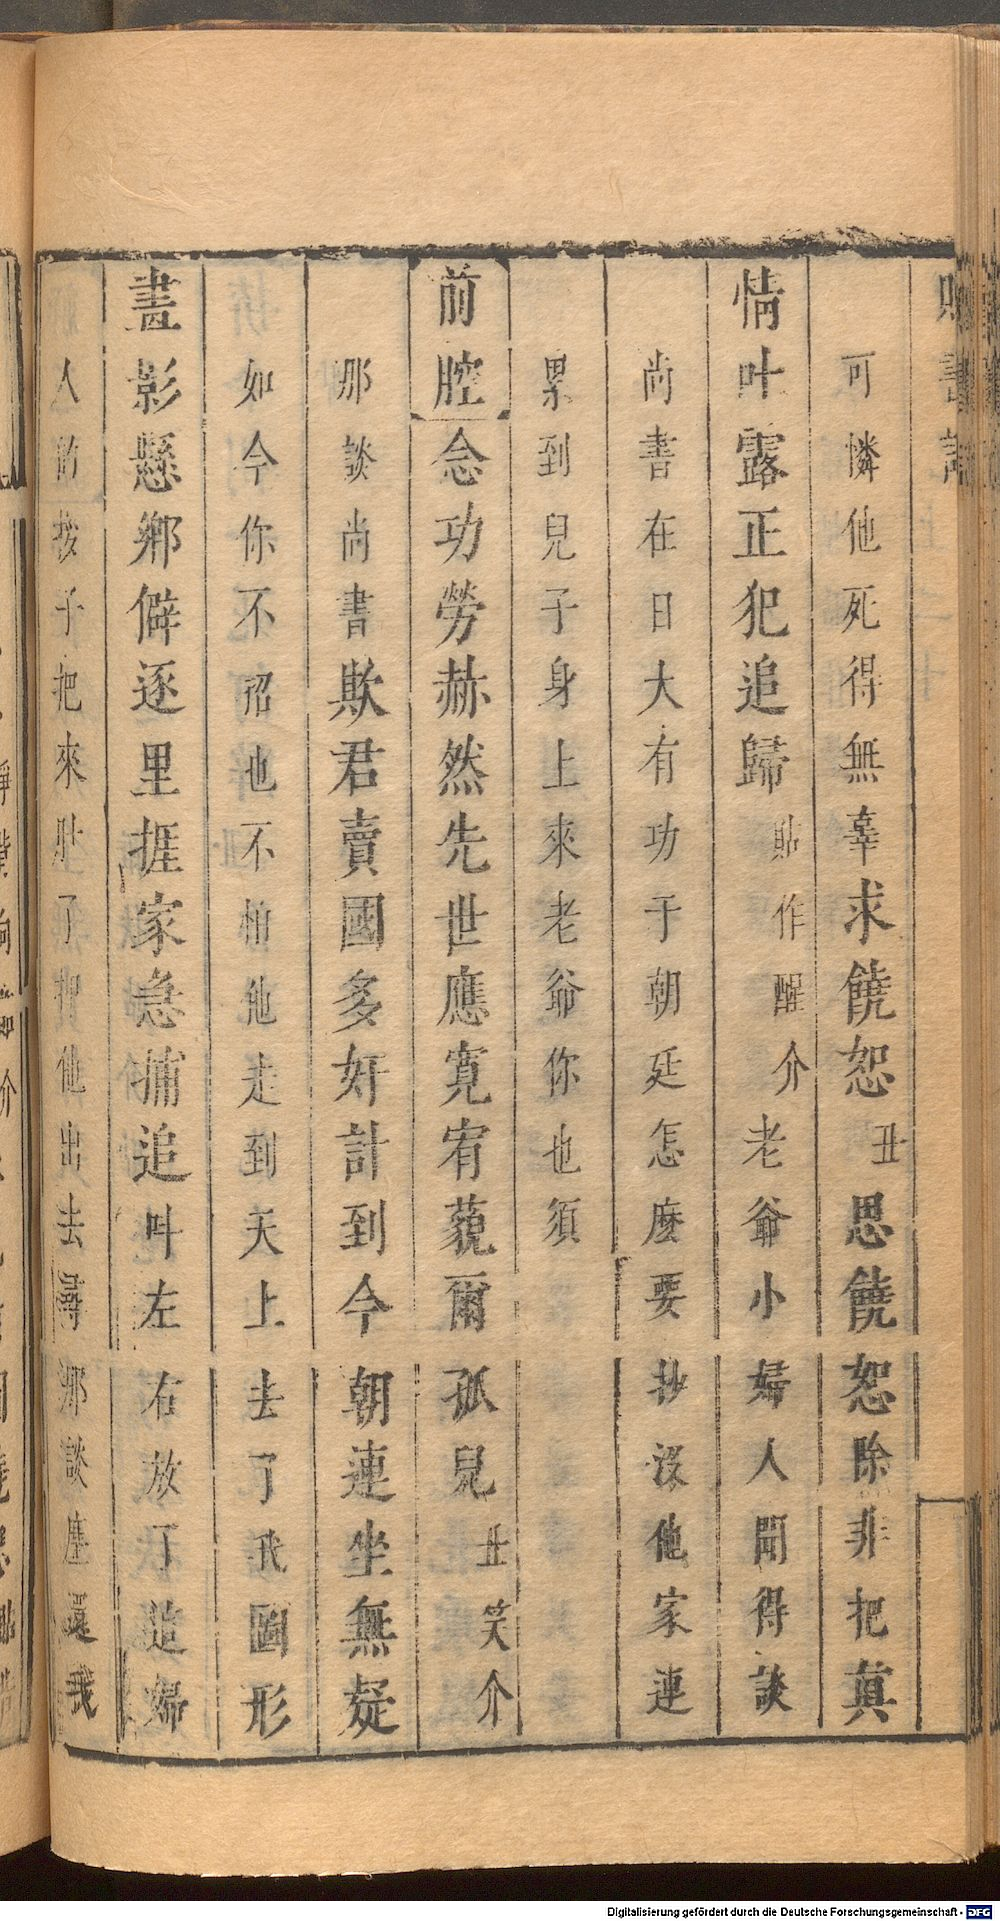 可憐他死得無辜求饒恕丑思饒恕除非把真
情叶露正犯追歸貼作醒介老爺小婦人聞得談
尚書在日大有功于朝廷怎麽要抄没他家連
累到兒子身上來老爺你也須
前腔念功勞赫然先世應寛宥藐爾孤兒丑笑介
那談尚書欺君賣國多奸計到今朝連坐無疑
如今你不招也不怕他走到天上去了我圖形
畫影懸鄉僻逐里捱家急捕追叫左右放了這婦
人的拶子把來肚了押他出去尋那談塵還我
Digitalisierung gefördert durch die Deutsche Forschungsgemeinschaft - DFG